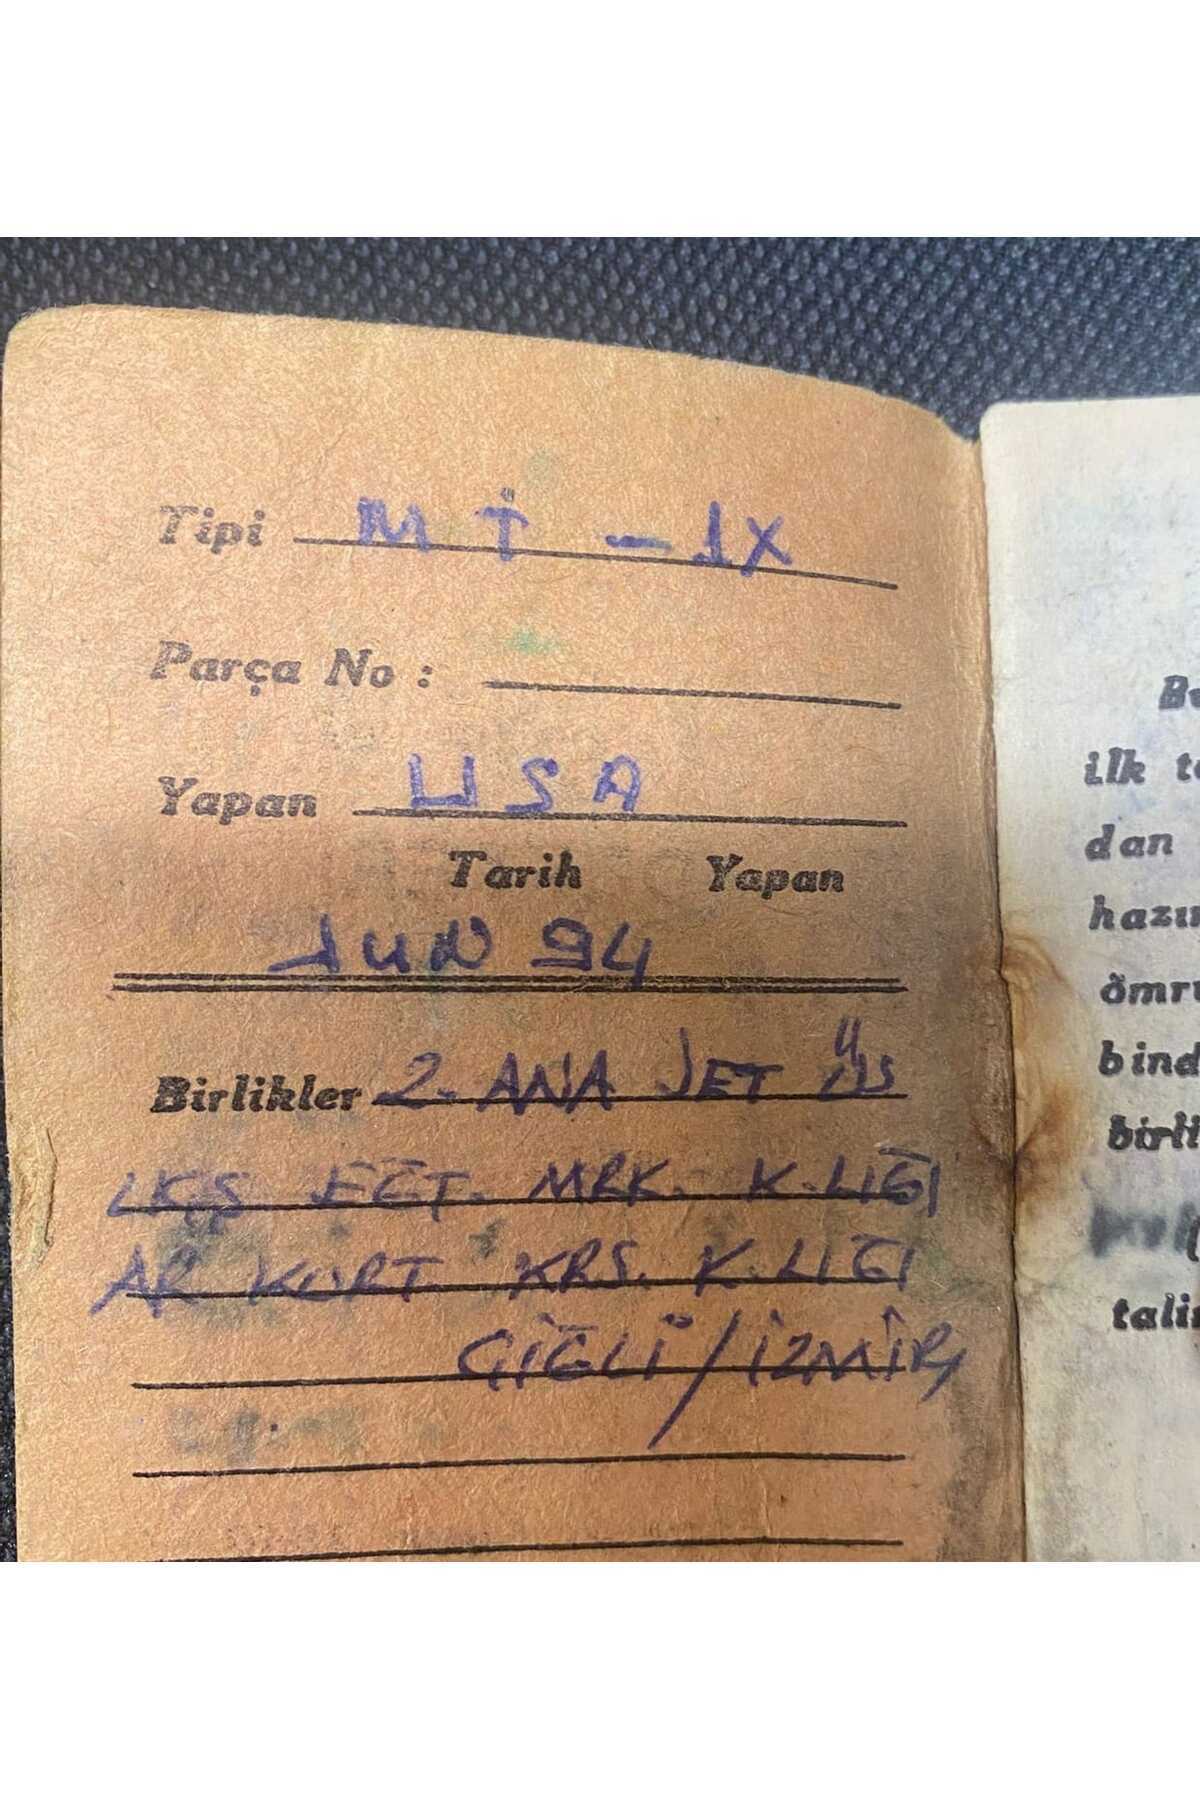 Tipi MT - 1X
Parça No :
Yapan USA
Tarih Yapan
JUN 94
Birlikler 2. ANA JET ÜS
LKŞ EĞT. MRK. K.LIĞI
AR KURT. KRS. K.LIĞI
ÇİĞLİ / İZMİR
ilk
dan
bind
birli